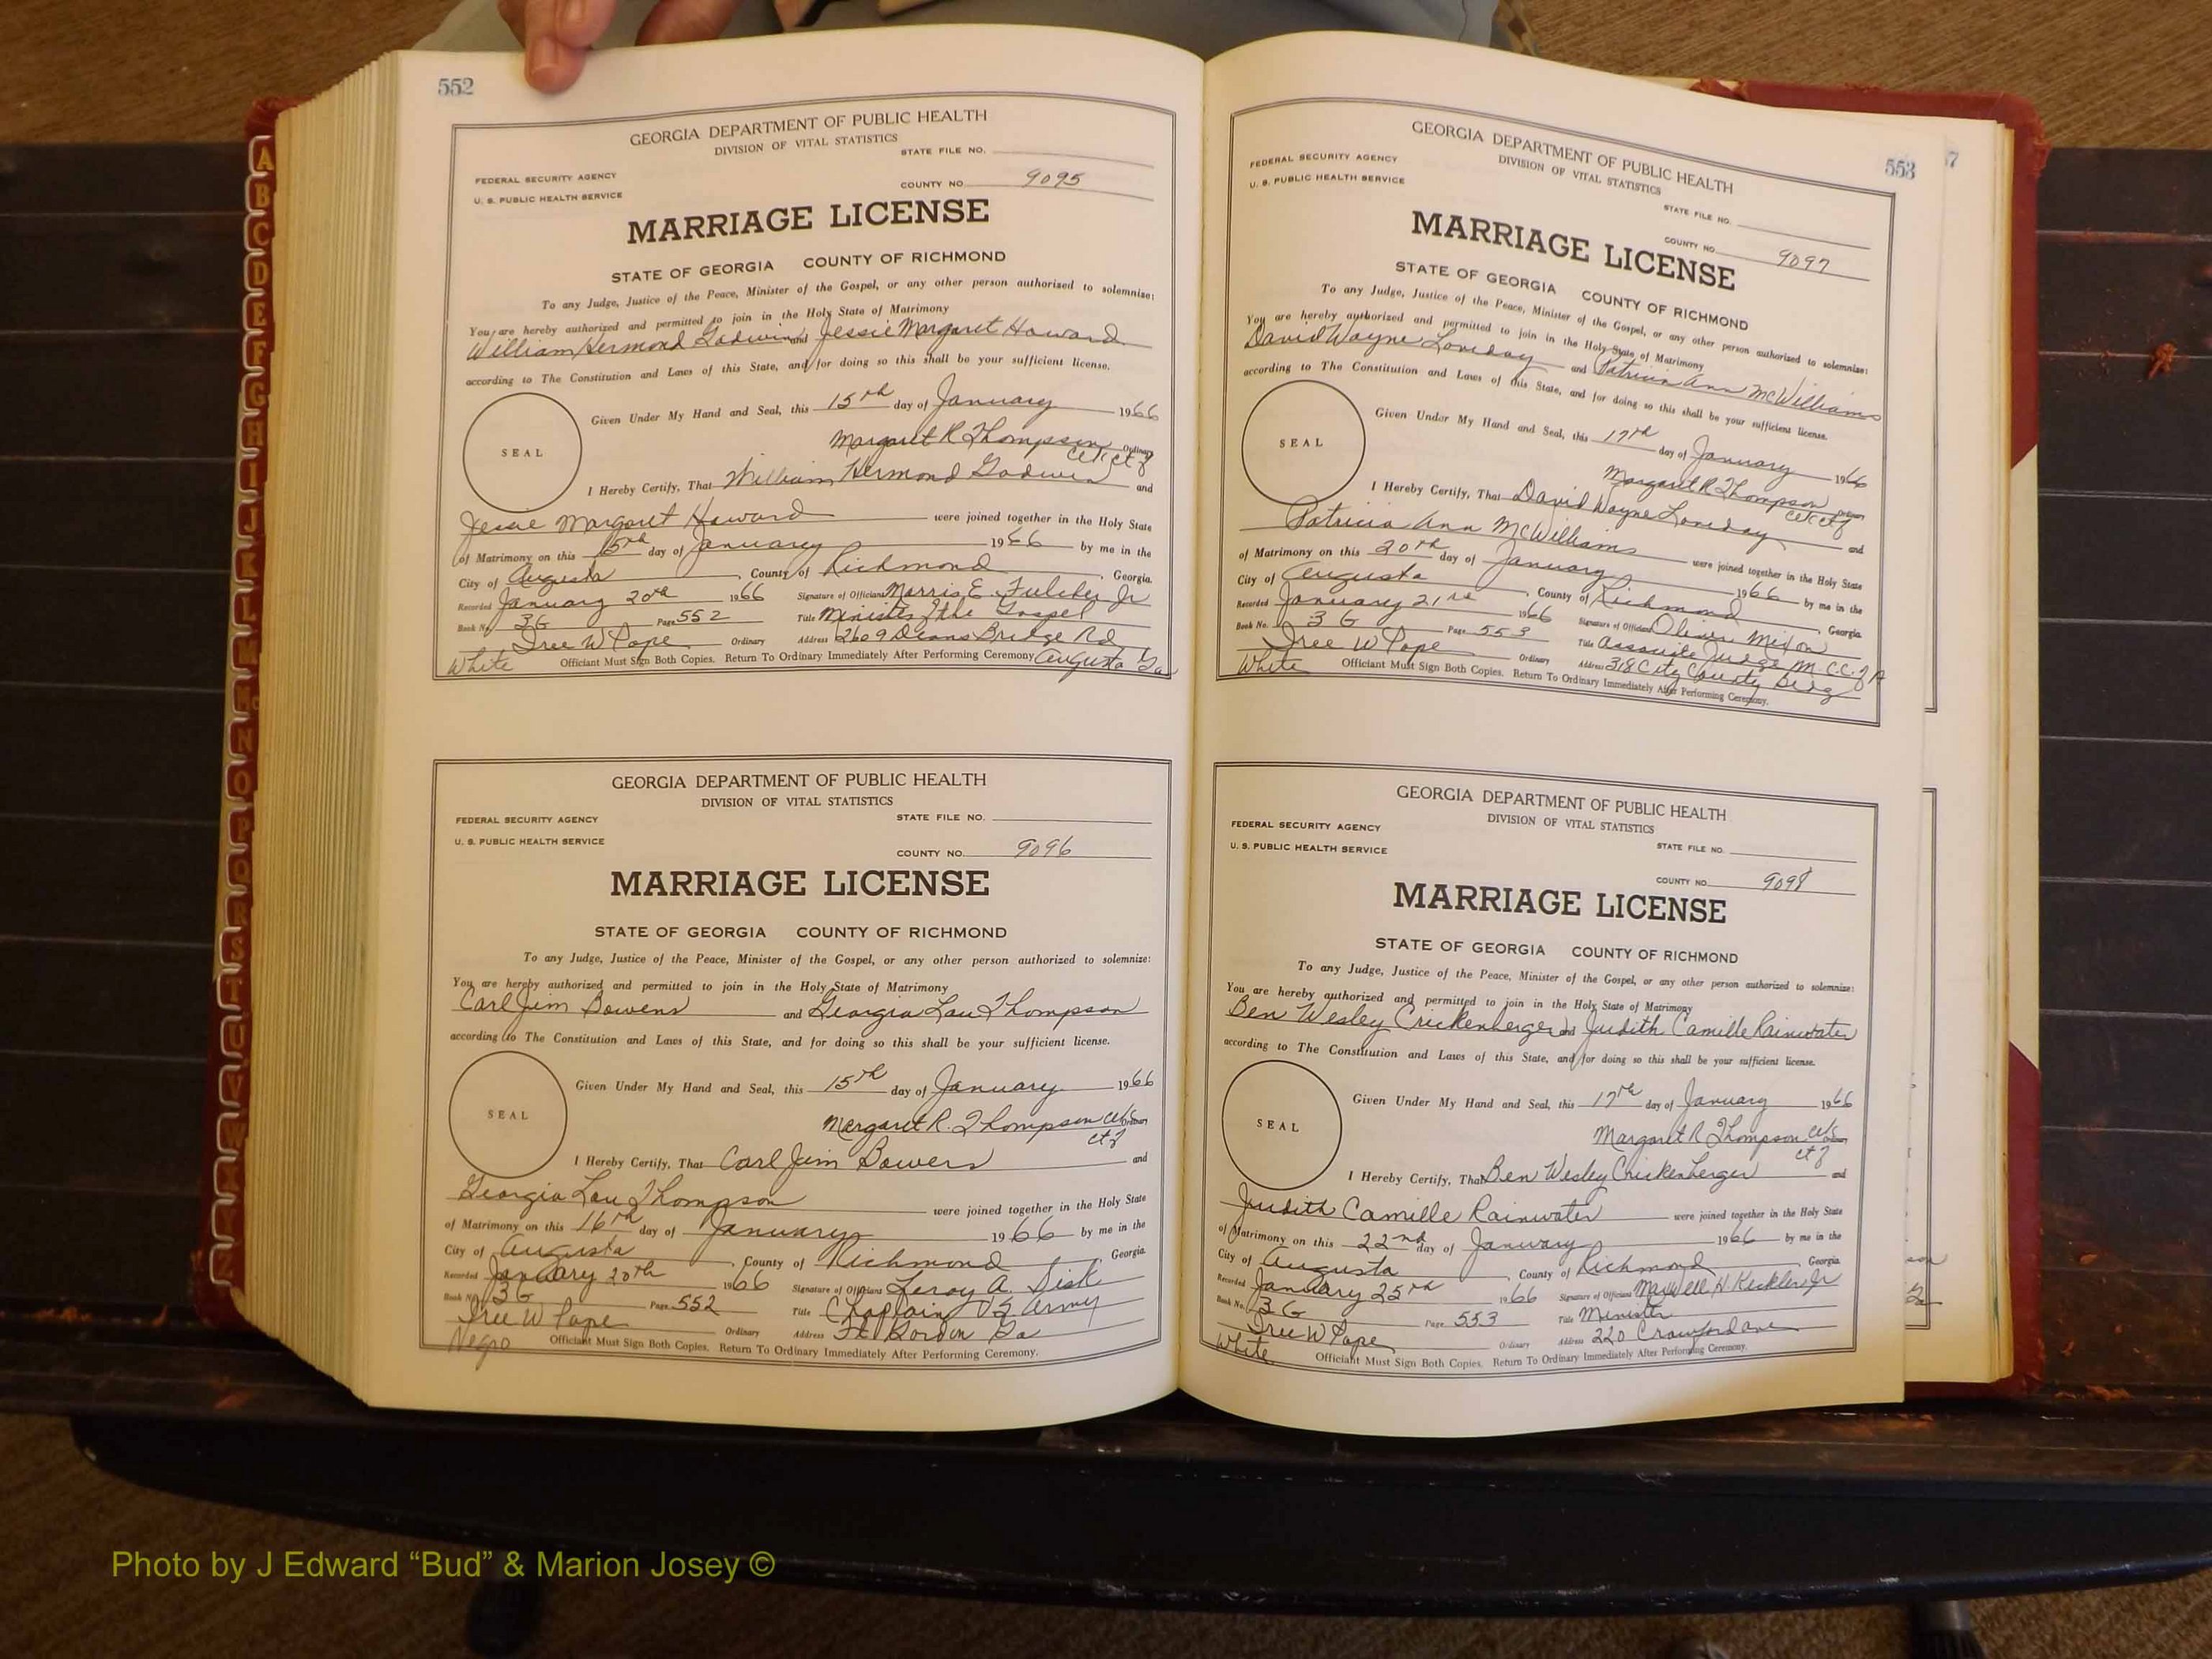 552
GEORGIA DEPARTMENT OF PUBLIC HEALTH
DIVISION OF VITAL STATISTICS
STATE FILE NO.
FEDERAL SECURITY AGENCY
U. S. PUBLIC HEALTH SERVICE
COUNTY NO. 9095
MARRIAGE LICENSE
STATE OF GEORGIA COUNTY OF RICHMOND
To any Judge, Justice of the Peace, Minister of the Gospel, or any other person authorized to solemnize:
You are hereby authorized and permitted to join in the Holy State of Matrimony
William Hermond Godwin and Jessie Margaret Howard
according to The Constitution and Laws of this State, and for doing so this shall be your sufficient license.
SEAL
Given Under My Hand and Seal, this 15th day of January 1966
Margaret R Thompson Ordinary
I Hereby Certify, That William Hermond Godwin and
Jessie Margaret Howard were joined together in the Holy State
of Matrimony on this 15th day of January 1966 by me in the
City of Augusta, County of Richmond, Georgia.
Recorded January 20th 1966 Signature of Officiant Morris E. Fulcher Jr
Book No. 3G Page 552 Title Minister of the Gospel
Iree W Pope Ordinary Address 2609 Deans Bridge Rd
White Officiant Must Sign Both Copies. Return To Ordinary Immediately After Performing Ceremony. Augusta Ga
GEORGIA DEPARTMENT OF PUBLIC HEALTH
DIVISION OF VITAL STATISTICS
STATE FILE NO.
FEDERAL SECURITY AGENCY
U. S. PUBLIC HEALTH SERVICE
COUNTY NO. 9096
MARRIAGE LICENSE
STATE OF GEORGIA COUNTY OF RICHMOND
To any Judge, Justice of the Peace, Minister of the Gospel, or any other person authorized to solemnize:
You are hereby authorized and permitted to join in the Holy State of Matrimony
Carl Jim Bowens and Georgia Lou Thompson
according to The Constitution and Laws of this State, and for doing so this shall be your sufficient license.
SEAL
Given Under My Hand and Seal, this 15th day of January 1966
Margaret R. Thompson Ordinary
I Hereby Certify, That Carl Jim Bowens and
Georgia Lou Thompson were joined together in the Holy State
of Matrimony on this 16th day of January 1966 by me in the
City of Augusta, County of Richmond, Georgia.
Recorded January 20th 1966 Signature of Officiant Leroy A. Sisk
Book No. 3G Page 552 Title Chaplain US Army
Iree W Pope Ordinary Address Ft. Gordon Ga
Negro Officiant Must Sign Both Copies. Return To Ordinary Immediately After Performing Ceremony.
553
GEORGIA DEPARTMENT OF PUBLIC HEALTH
DIVISION OF VITAL STATISTICS
FEDERAL SECURITY AGENCY
U. S. PUBLIC HEALTH SERVICE
STATE FILE NO.
COUNTY NO. 9097
MARRIAGE LICENSE
STATE OF GEORGIA COUNTY OF RICHMOND
To any Judge, Justice of the Peace, Minister of the Gospel, or any other person authorized to solemnize:
You are hereby authorized and permitted to join in the Holy State of Matrimony
David Wayne Loveday and Patricia Ann McWilliams
according to The Constitution and Laws of this State, and for doing so this shall be your sufficient license.
SEAL
Given Under My Hand and Seal, this 17th day of January 1966
Margaret R Thompson Ordinary
I Hereby Certify, That David Wayne Loveday and
Patricia Ann McWilliams were joined together in the Holy State
of Matrimony on this 20th day of January 1966 by me in the
City of Augusta, County of Richmond, Georgia.
Recorded January 21st 1966 Signature of Officiant Oliver Mixon
Book No. 3G Page 553 Title Associate Judge M.C.C. of A
Iree W Pope Ordinary Address 318 City County Bldg
White Officiant Must Sign Both Copies. Return To Ordinary Immediately After Performing Ceremony.
GEORGIA DEPARTMENT OF PUBLIC HEALTH
DIVISION OF VITAL STATISTICS
FEDERAL SECURITY AGENCY
U. S. PUBLIC HEALTH SERVICE
STATE FILE NO.
COUNTY NO. 9098
MARRIAGE LICENSE
STATE OF GEORGIA COUNTY OF RICHMOND
To any Judge, Justice of the Peace, Minister of the Gospel, or any other person authorized to solemnize:
You are hereby authorized and permitted to join in the Holy State of Matrimony
Ben Wesley Crickenberger and Judith Camille Rainwater
according to The Constitution and Laws of this State, and for doing so this shall be your sufficient license.
SEAL
Given Under My Hand and Seal, this 17th day of January 1966
Margaret R Thompson Ordinary
I Hereby Certify, That Ben Wesley Crickenberger and
Judith Camille Rainwater were joined together in the Holy State
of Matrimony on this 22nd day of January 1966 by me in the
City of Augusta, County of Richmond, Georgia.
Recorded January 25th 1966 Signature of Officiant Maxwell H Keckler Jr
Book No. 3G Page 553 Title Minister
Iree W Pope Ordinary Address 220 Crawford ave
White Officiant Must Sign Both Copies. Return To Ordinary Immediately After Performing Ceremony.
A
B
C
D
E
F
G
H
I
J
K
L
M
Mc
N
O
P
Q
R
S
T
U
V
W
X
Y
Z
Photo by J Edward “Bud” & Marion Josey ©